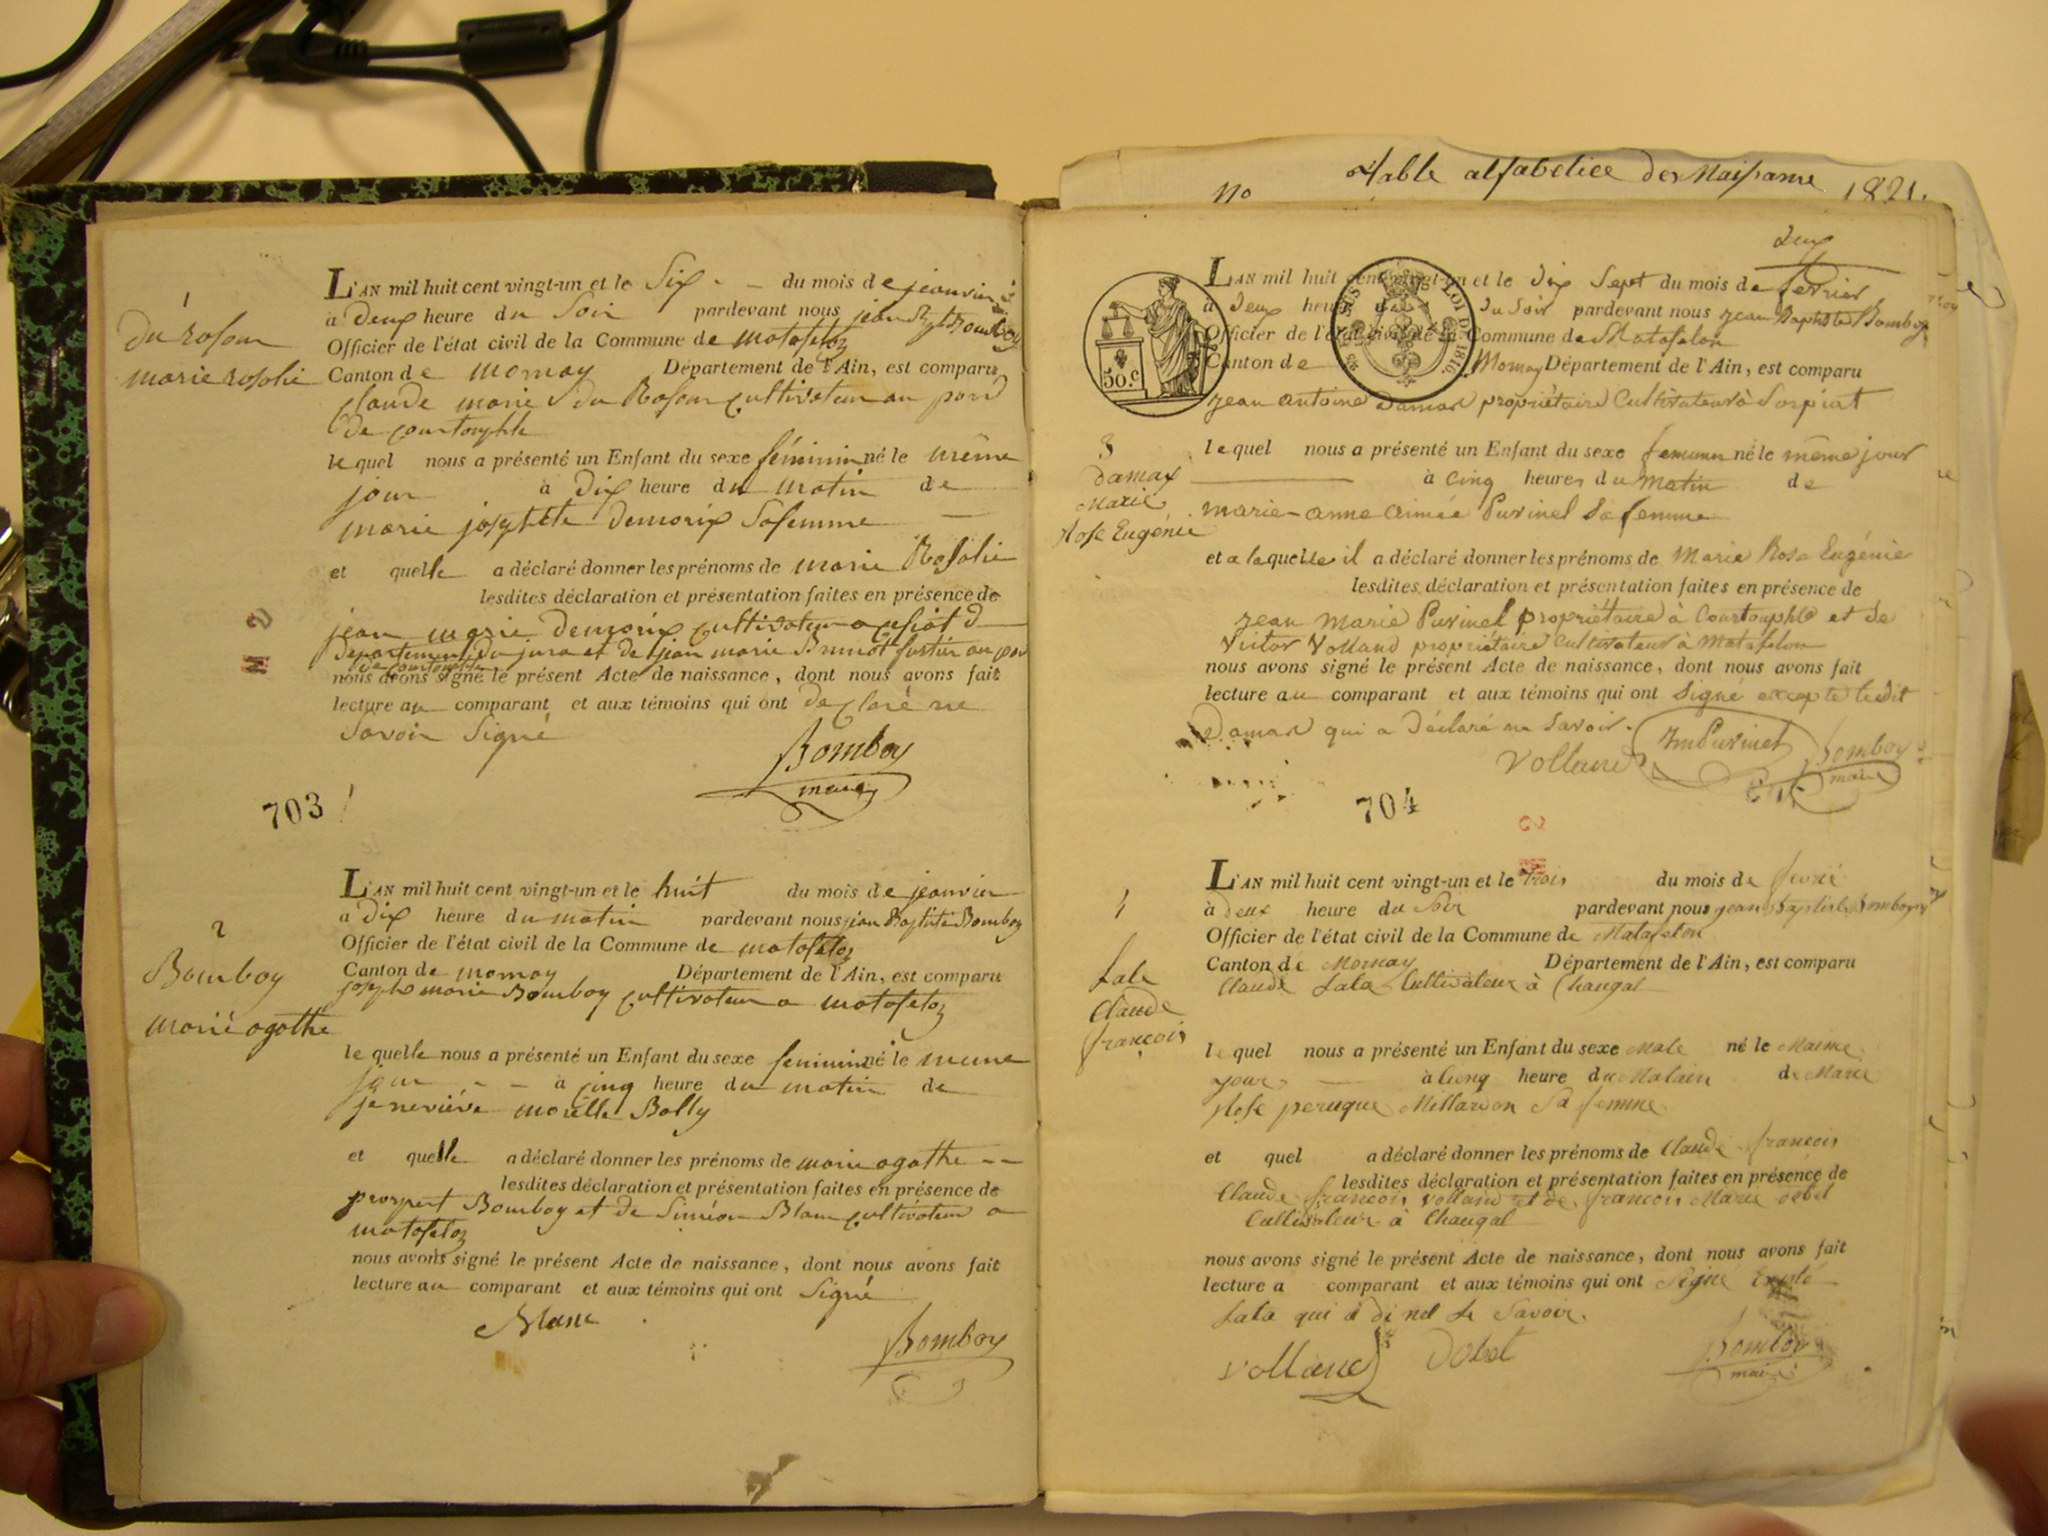 1
du rosou
marie rosolie
L'AN mil huit cent vingt-un et le Six du mois de jeanvier
à Deux heure du Soir pardevant nous jean Bpt Bomboy
Officier de l'état civil de la Commune de matafeloz
Canton de mornay Département de l'Ain, est comparu
claude marie du Rosou cultivateur au pon
de courtouphle
lequel nous a présenté un Enfant du sexe féminin né le même
jour à Dix heure du matin de
marie josephte demorix sa femme
et quelle a déclaré donner les prénoms de marie Rosolie
lesdites déclaration et présentation faites en présence de
jean marie Demorix cultivateur a
Departement du jura et de jean marie au pon
de courtouphle
nous avons signé le présent Acte de naissance, dont nous avons fait
lecture au comparant et aux témoins qui ont de claré ne
Savoir Signé
Bomboy
maire
703
2
Bomboy
marie agathe
L'AN mil huit cent vingt-un et le huit du mois de jeanvier
à Dix heure du matin pardevant nous jean Baptiste Bomboy
Officier de l'état civil de la Commune de matafeloz
Canton de mornay Département de l'Ain, est comparu
joseph marie Bomboy cultivateur a matafeloz
le quelle nous a présenté un Enfant du sexe feminin né le meme
jour à cinq heure du matin de
jeneviéve morelle Bolly
et quelle a déclaré donner les prénoms de marie agathe
lesdites déclaration et présentation faites en présence de
prospert Bomboy et de Siméon Blanc cultivateur a
matafeloz
nous avons signé le présent Acte de naissance, dont nous avons fait
lecture au comparant et aux témoins qui ont Signé
Blanc
Bomboy
Table alfabetice des Naissance 1821.
No
deux
50 c
LOI DE 1816
L'AN mil huit cent vingt-un et le dix Sept du mois de fevrier
à deux heures du Soir pardevant nous jean Baptiste Bomboy
Officier de l'état civil de la Commune de Matafelon
Canton de Mornay Département de l'Ain, est comparu
jean antoine Damas propriétaire Cultivateur à Sorpiat
3
Damas
Marie
Rose Eugénie
lequel nous a présenté un Enfant du sexe feminin né le même jour
à cinq heures du Matin de
marie-anne aimée Purinel Sa femme
et a laquelle il a déclaré donner les prénoms de Marie Rose Eugénie
lesdites déclaration et présentation faites en présence de
jean Marie Purinel propriétaire à Courtouphle et de
Victor Volland propriétaire Cultivateur à Matafelon
nous avons signé le présent Acte de naissance, dont nous avons fait
lecture au comparant et aux témoins qui ont Signé excepte ledit
Damas qui a Déclaré ne Savoir.
Volland JmPurinel Bomboy
maire
704
L'AN mil huit cent vingt-un et le trois du mois de fevrié
à deux heure du Soir pardevant nous jean Baptiste Bomboy
Officier de l'état civil de la Commune de Matafelon
Canton de Mornay Département de l'Ain, est comparu
Claude Lala Cultivateur à Changal
Lala
Claude
françois
lequel nous a présenté un Enfant du sexe Male né le Maime
jour à cinq heure du Matain de Marie
Rose peruque Millardon Sa femme
et quel a déclaré donner les prénoms de Claude françois
lesdites déclaration et présentation faites en présence de
Claude françois Volland et de françois Marie
Cultivateur à Changal
nous avons signé le présent Acte de naissance, dont nous avons fait
lecture a comparant et aux témoins qui ont Signe
Lala qui a di nel le Savoir.
Volland
Bomboy
maire